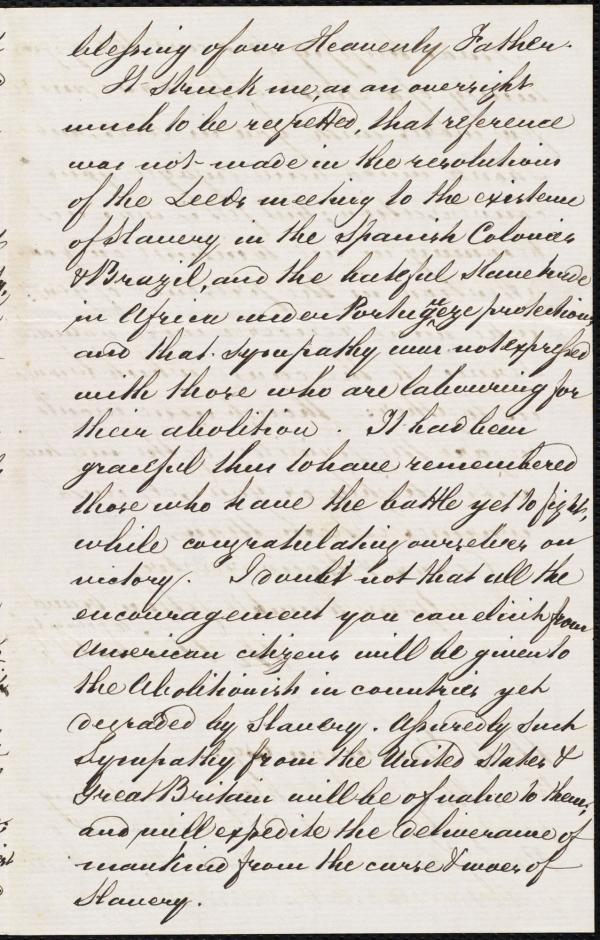 blessing of our Heavenly Father.
It struck me, as an oversight
much to be regretted, that reference
was not made in the resolutions
of the Leeds meeting to the existence
of Slavery in the Spanish Colonies
& Brazil, and the hateful Slave trade
in Africa under Portugeze protection,
and that sympathy was not expressed
with those who are labouring for
their abolition. It had been
graceful thus to have remembered
those who have the battle yet to fight,
while congratulating ourselves on
victory. I doubt not that all the
encouragement you can elicit from
American citizens will be given to
the Abolitionists in countries yet
degraded by Slavery. Assuredly such
Sympathy from the United States &
Great Britain will be of value to them,
and will expedite the deliverance of
mankind from the curse & woes of
Slavery.